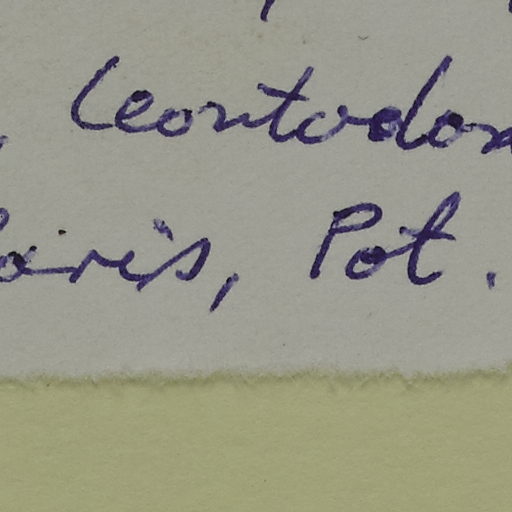 , Leontodon
aris, Pot.